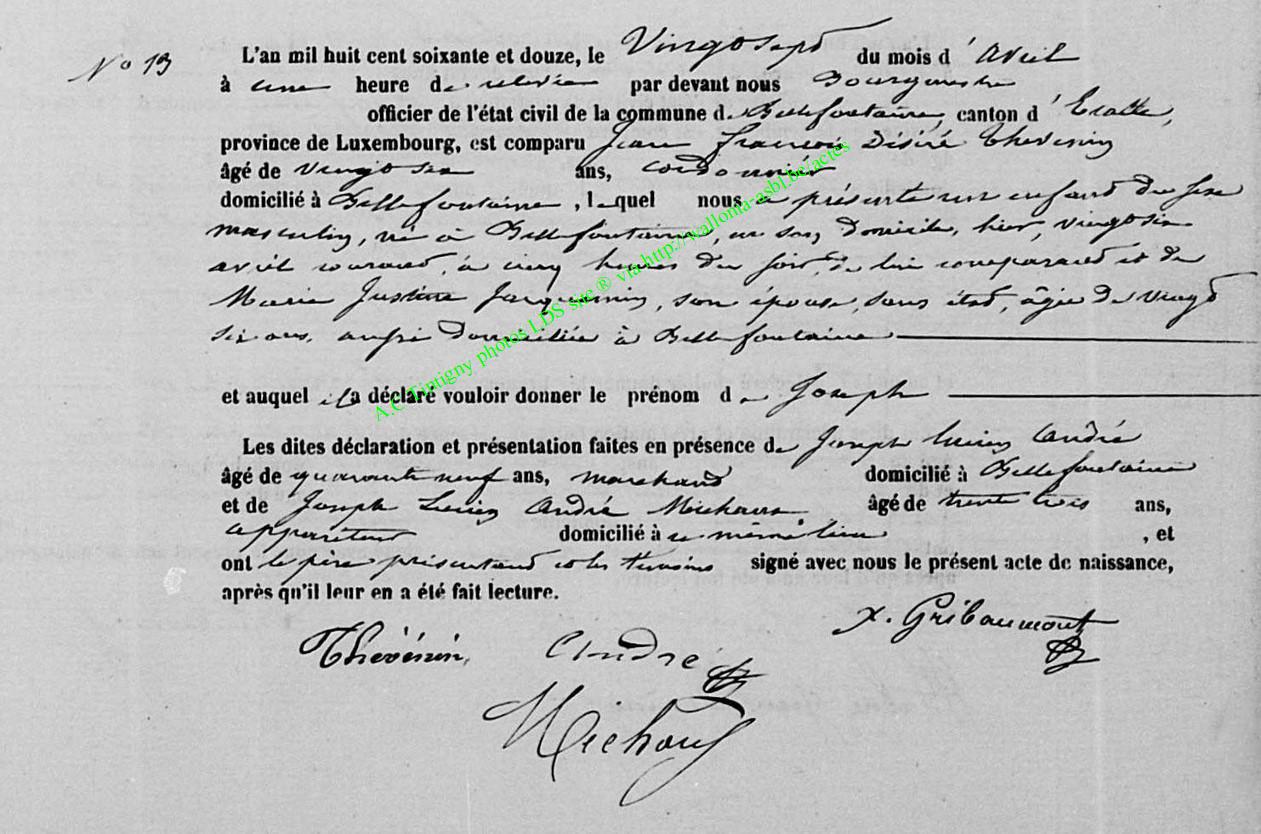 No 13
L'an mil huit cent soixante et douze, le Vingt sept du mois d'Avril
à une heure de relevée par devant nous Bourgmestre
officier de l'état civil de la commune de Bellefontaine, canton d'Etalle,
province de Luxembourg, est comparu Jean François Désiré Thevenin
âgé de vingt six ans, cordonnier
domicilié à Bellefontaine, lequel nous a présenté un enfant du sexe
masculin, né à Bellefontaine, en son domicile, hier, vingt six
avril courant, à cinq heures du soir, de lui comparant et de
Marie Justine Jacquemin, son épouse, sans état, âgée de vingt
six ans, aussi domiciliée à Bellefontaine
et auquel il a déclaré vouloir donner le prénom de Joseph
Les dites déclaration et présentation faites en présence de Joseph Lucien André
âgé de quarante neuf ans, marchand domicilié à Bellefontaine
et de Joseph Lucien André Michaux âgé de trente trois ans,
appariteur domicilié à ce même lieu, et
ont le père présentant et les témoins signé avec nous le présent acte de naissance,
après qu'il leur en a été fait lecture.
Thévénin André X. Gribaumont
Michaux
A.C Tintigny photos LDS site ® via http://wallonia-asbl.be/actes